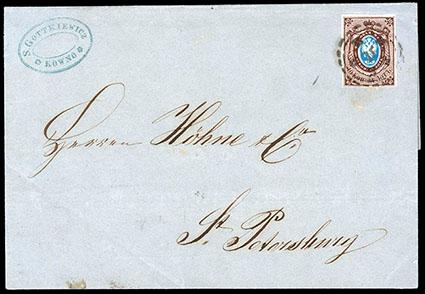 S. GOTTKIEWICZ
KOWNO
Herren Höhne & Co
St. Petersburg